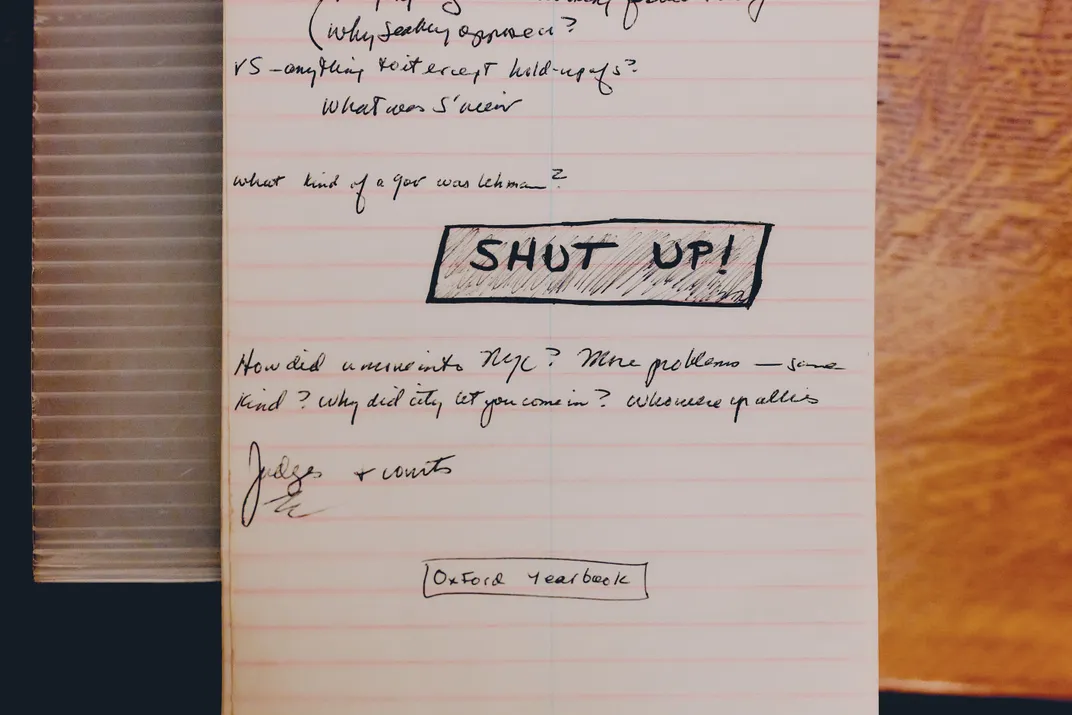 (why Seabury opposed?
VS - anything to it except hold-up of s?
What was S' view
what kind of a gov was Lehman?
SHUT UP!
How did u move into NYC? More problems — same
kind? Why did city let you come in? Who were yr allies
Judges + courts
Oxford Yearbook